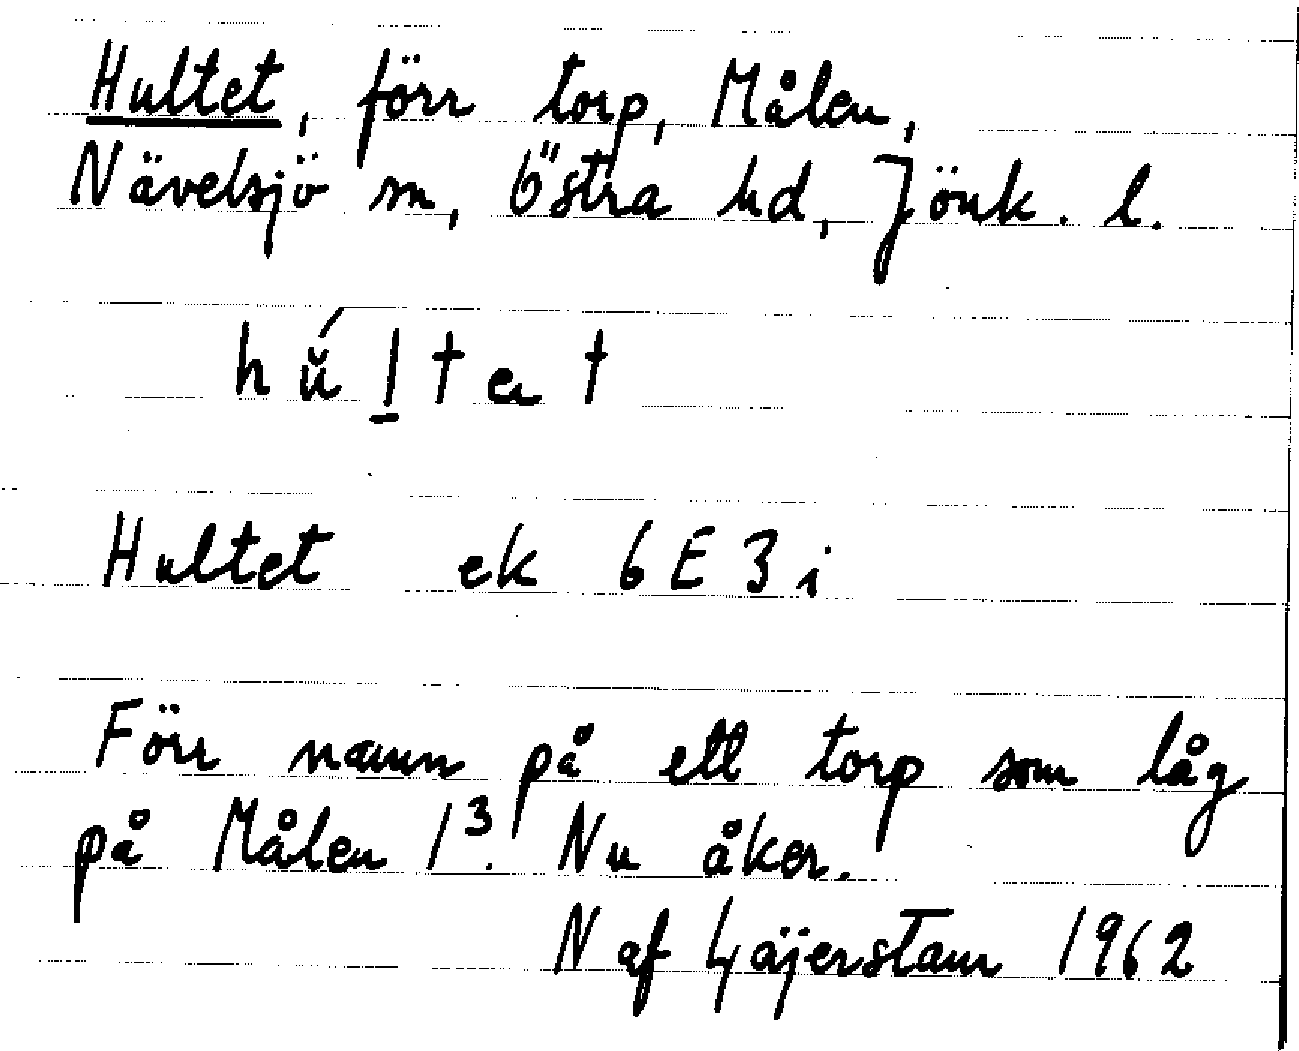 Hultet, förr torp, Målen,
Nävelsjö sn, Östra hd, Jönk. l.
hŭ́l̲tet
Hultet ek 6E3i
Förr namn på ett torp som låg
på Målen 1³. Nu åker.
N af Gäijerstam 1962